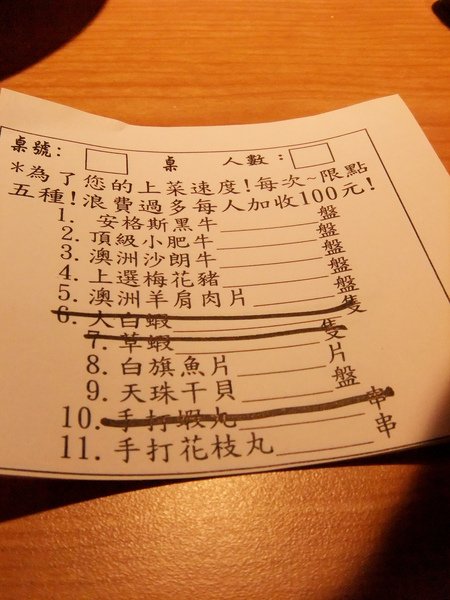 桌號: 桌 人數:
*為了您的上菜速度!每次~限點
五種!浪費過多每人加收100元!
1. 安格斯黑牛 盤
2. 頂級小肥牛 盤
3. 澳洲沙朗牛 盤
4. 上選梅花豬 盤
5. 澳洲羊肩肉片 盤
6. 大白蝦 隻
7. 草蝦 隻
8. 白旗魚片 片
9. 天珠干貝 盤
10. 手打蝦丸 串
11. 手打花枝丸 串